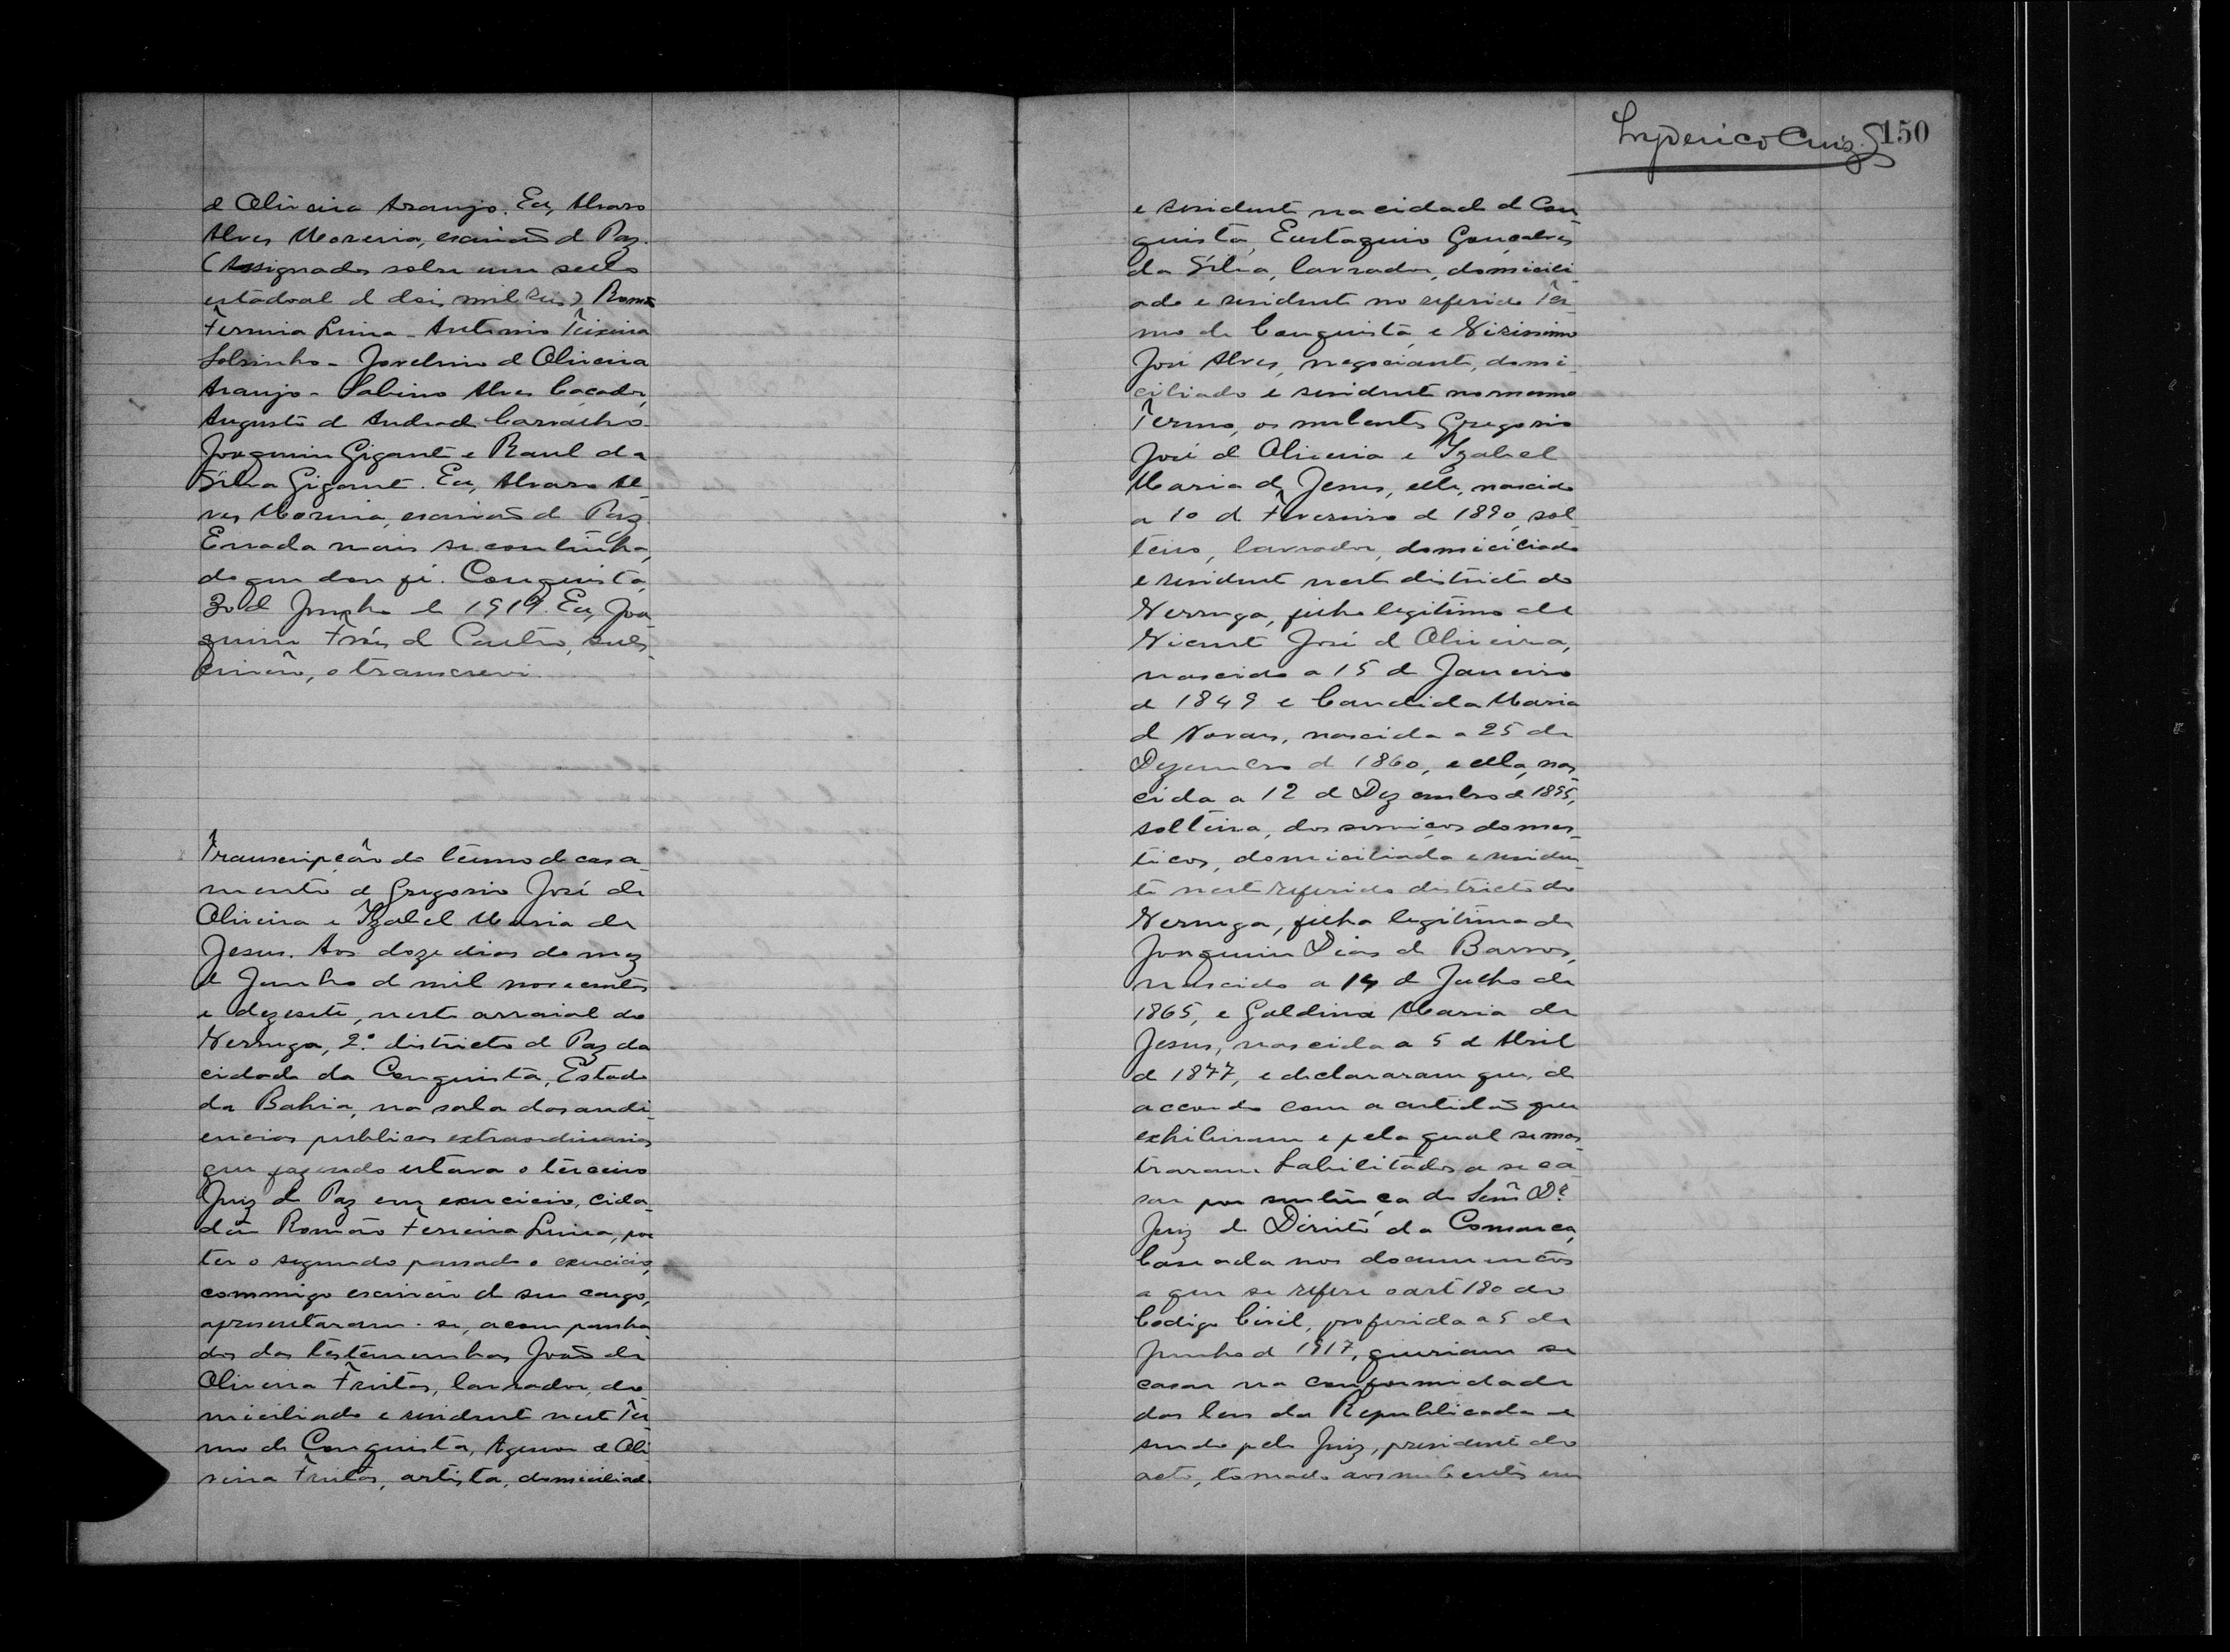 d Oliveira Araujo. Eu, Alvaro
Alves Moreira, escrivão d Paz.
(Assignados sobre um sello
estadoal d dois mil reis) Romão
Ferreira Lima - Antonio Teixeira
Sobrinho - Jovelino d Oliveira
Araujo - Sabino Alves Caçador,
Augusto d Andrade Carvalho
Joaquim Gigante e Raul da
Silva Gigante. Eu, Alvaro Al-
ves Moreira, escrivão d Paz
E nada mais se continha,
do que dou fé. Conquista,
30 d Junho d 1919. Eu, Joa
quim Fróes d Castro, sub
Official, o transcrevi.
Transcripção do termo de casa
mento de Gregorio José de
Oliveira e Izabel Maria de
Jesus. Aos doze dias do mez
de Junho d mil novecentos
e dezesete, neste arraial do
Verruga, 2º districto d Paz da
cidade da Conquista, Estado
da Bahia, na sala das audi
encias publicas extraordinarias
que fazendo estava o terceiro
Juiz de Paz em exercicio, cida
dão Romão Ferreira Lima, por
ter o segundo passado o exercicio,
commigo escrivão de seu cargo,
apresentaram-se, acompanha
dos das testemunhas João de
Oliveira Freitas, lavrador, do
miciliado e residente neste Ter
mo de Conquista, Agenor d Oli
veira Freitas, artista, domiciliado
Lyderico Cruz. 150
e residente na cidade d Con
quista, Eustaquio Gonçalves
da Silva, lavrador, domicili
ado e residente no referido Ter
mo de Conquista, e Virissimo
José Alves, negociante, domi
ciliado e residente no mesmo
Termo, os nubentes Gregorio
José d Oliveira e Izabel
Maria de Jesus, elle, nascido
a 10 d Fevereiro d 1890, sol
teiro, lavrador, domiciliado
e residente neste districto do
Verruga, filho legitimo de
Vicente José d Oliveira,
nascido a 15 de Janeiro
d 1849 e Candida Maria
d Novaes, nascida a 25 de
Dezembro d 1860, e ella, nas
cida a 12 d Dezembro d 1895,
solteira, dos serviços domes
ticos, domiciliada e residen
te neste referido districto do
Verruga, filha legitima de
Joaquim Dias de Barros,
nascido a 14 d Julho de
1865, e Galdina Maria de
Jesus, nascida a 5 d Abril
d 1877, e declararam que, de
accordo com a certidão que
exhibiram e pela qual se mos
traram habilitados a se ca
sar por sentença do Senr Dr
Juiz de Direito da Comarca,
baseada nos documentos
a que se refere o art 180 do
Codigo Civil, proferida a 5 de
Junho d 1917, queriam se
casar na conformidade
das leis da Republica da e
sendo pelo Juiz, presidente do
acto, tomado aos nubentes um